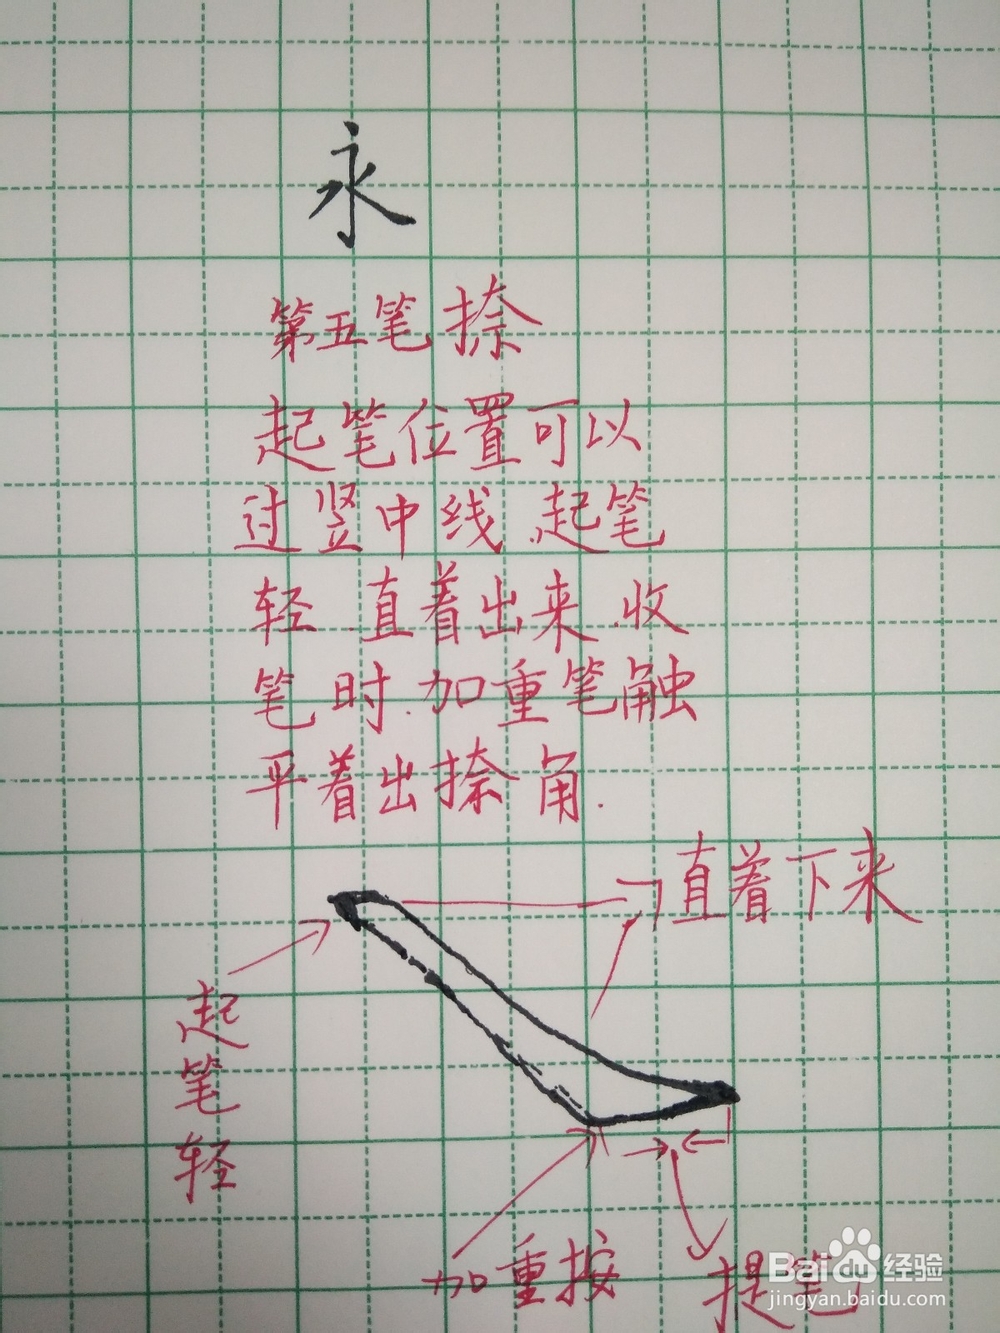 永
第五笔捺
起笔位置可以
过竖中线.起笔
轻.直着出来.收
笔时.加重笔触
平着出捺角.
直着下来
起笔轻
加重按
提笔
Baidu经验
jingyan.baidu.com